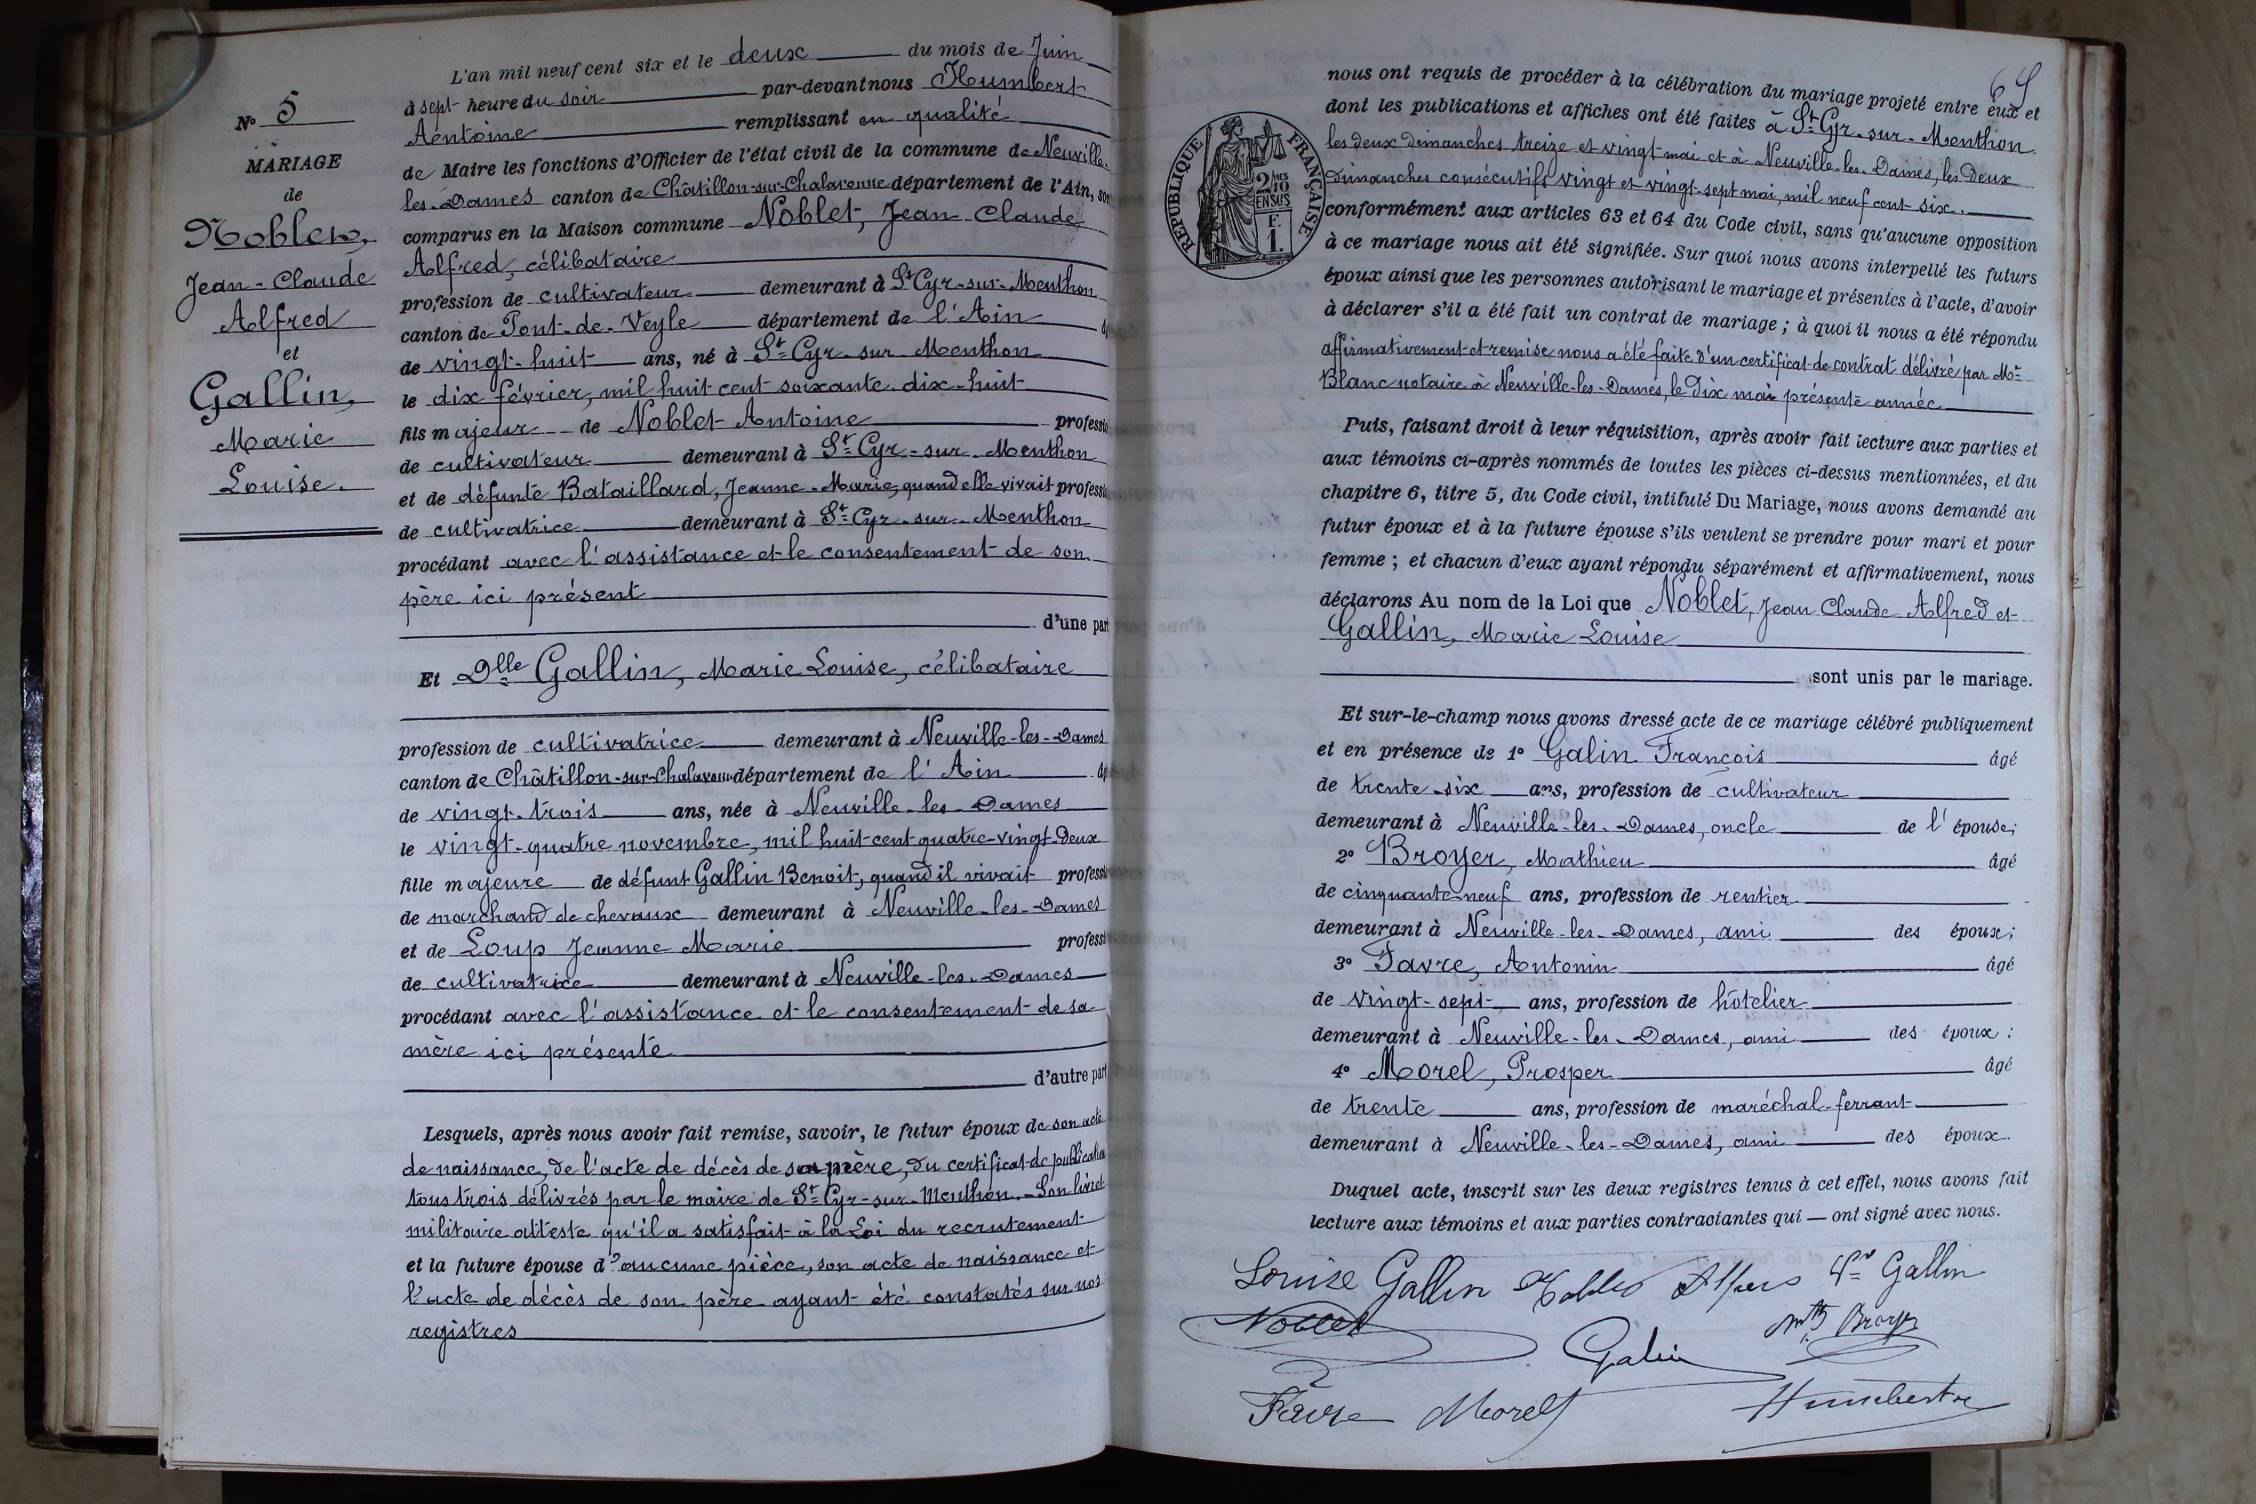 N° 5
MARIAGE
de
Noblet,
Jean-Claude
Alfred
et
Gallin,
Marie
Louise.
L'an mil neuf cent six et le deux du mois de Juin
à sept heure du soir par-devant nous Humbert
Antoine remplissant en qualité
de Maire les fonctions d'Officier de l'état civil de la commune de Neuville-
les-Dames canton de Châtillon-sur-Chalaronne département de l'Ain, son
comparus en la Maison commune Noblet, Jean-Claude,
Alfred, célibataire
profession de cultivateur demeurant à St Cyr-sur-Menthon
canton de Pont-de-Veyle département de l'Ain
de vingt-huit ans, né à St Cyr-sur-Menthon
le dix février, mil huit cent soixante-dix-huit
fils majeur de Noblet Antoine professi
de cultivateur demeurant à St Cyr-sur-Menthon
et de défunte Bataillard, Jeanne-Marie, quand elle vivait professi
de cultivatrice demeurant à St Cyr-sur-Menthon
procédant avec l'assistance et le consentement de son
père ici présent
d'une part
Et Dlle Gallin, Marie Louise, célibataire
profession de cultivatrice demeurant à Neuville-les-Dames
canton de Châtillon-sur-Chalaronne département de l'Ain
de vingt-trois ans, née à Neuville-les-Dames
le vingt-quatre novembre, mil huit cent quatre-vingt-deux
fille majeure de défunt Gallin Benoit, quand il vivait professi
de marchand de chevaux demeurant à Neuville-les-Dames
et de Loup Jeanne Marie professi
de cultivatrice demeurant à Neuville-les-Dames
procédant avec l'assistance et le consentement de sa
mère ici présente
d'autre part
Lesquels, après nous avoir fait remise, savoir, le futur époux de son acte
de naissance, de l'acte de décès de sa mère, du certificat de publication
tous trois délivrés par le maire de St Cyr-sur-Menthon. Son livret
militaire atteste qu'il a satisfait à la Loi du recrutement
et la future épouse d'aucune pièce, son acte de naissance et
l'acte de décès de son père ayant été constatés sur nos
registres
nous ont requis de procéder à la célébration du mariage projeté entre eux et
dont les publications et affiches ont été faites à St Cyr-sur-Menthon
les deux dimanches treize et vingt mai et à Neuville-les-Dames, les deux
dimanches consécutifs vingt et vingt-sept mai, mil neuf cent six.
conformément aux articles 63 et 64 du Code civil, sans qu'aucune opposition
à ce mariage nous ait été signifiée. Sur quoi nous avons interpellé les futurs
époux ainsi que les personnes autorisant le mariage et présentes à l'acte, d'avoir
à déclarer s'il a été fait un contrat de mariage ; à quoi il nous a été répondu
affirmativement et remise nous a été faite d'un certificat de contrat délivré par Me
Blanc notaire à Neuville-les-Dames, le dix mai présente année
Puis, faisant droit à leur réquisition, après avoir fait lecture aux parties et
aux témoins ci-après nommés de toutes les pièces ci-dessus mentionnées, et du
chapitre 6, titre 5, du Code civil, intitulé Du Mariage, nous avons demandé au
futur époux et à la future épouse s'ils veulent se prendre pour mari et pour
femme ; et chacun d'eux ayant répondu séparément et affirmativement, nous
déclarons Au nom de la Loi que Noblet, Jean Claude Alfred et
Gallin, Marie Louise
sont unis par le mariage.
Et sur-le-champ nous avons dressé acte de ce mariage célébré publiquement
et en présence de 1° Galin François âgé
de trente-six ans, profession de cultivateur
demeurant à Neuville-les-Dames, oncle de l'épouse;
2° Broyer, Mathieu âgé
de cinquante-neuf ans, profession de rentier
demeurant à Neuville-les-Dames, ami des époux;
3° Favre, Antonin âgé
de vingt-sept ans, profession de hôtelier
demeurant à Neuville-les-Dames, ami des époux:
4° Morel, Prosper âgé
de trente ans, profession de maréchal-ferrant
demeurant à Neuville-les-Dames, ami des époux.
Duquel acte, inscrit sur les deux registres tenus à cet effet, nous avons fait
lecture aux témoins et aux parties contractantes qui — ont signé avec nous.
Louise Gallin Noblet Alfred Gallin
Noblet Galin Broyer
Favre Morel Humbert
RÉPUBLIQUE FRANÇAISE
2/10 EN SUS
1 F.